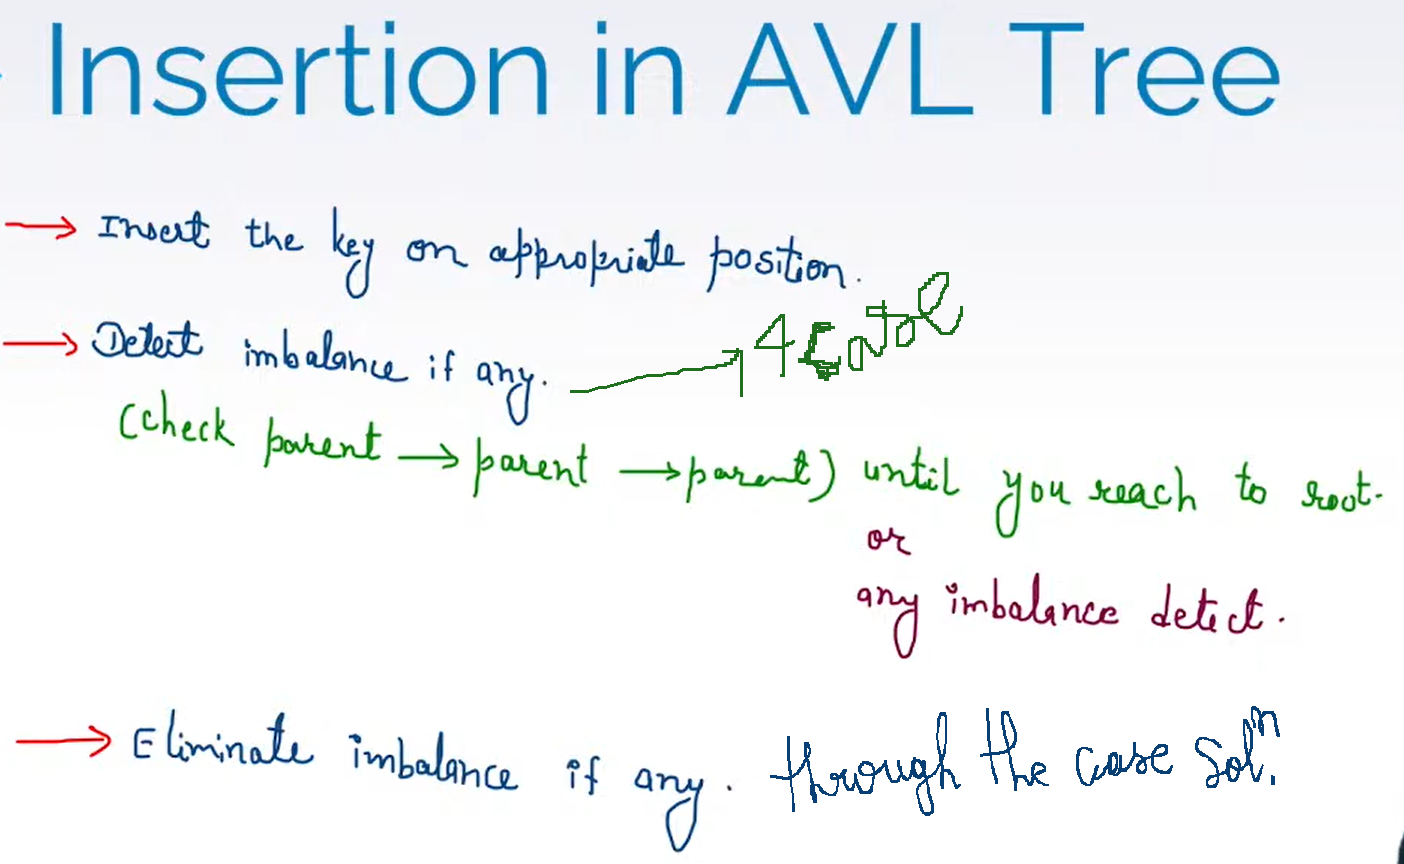 Insertion in AVL Tree
→ Insert the key on appropriate position.
→ Detect imbalance if any. → 4
(check parent → parent → parent) until you reach to root.
or
any imbalance detect.
→ Eliminate imbalance if any. through the case solⁿ.